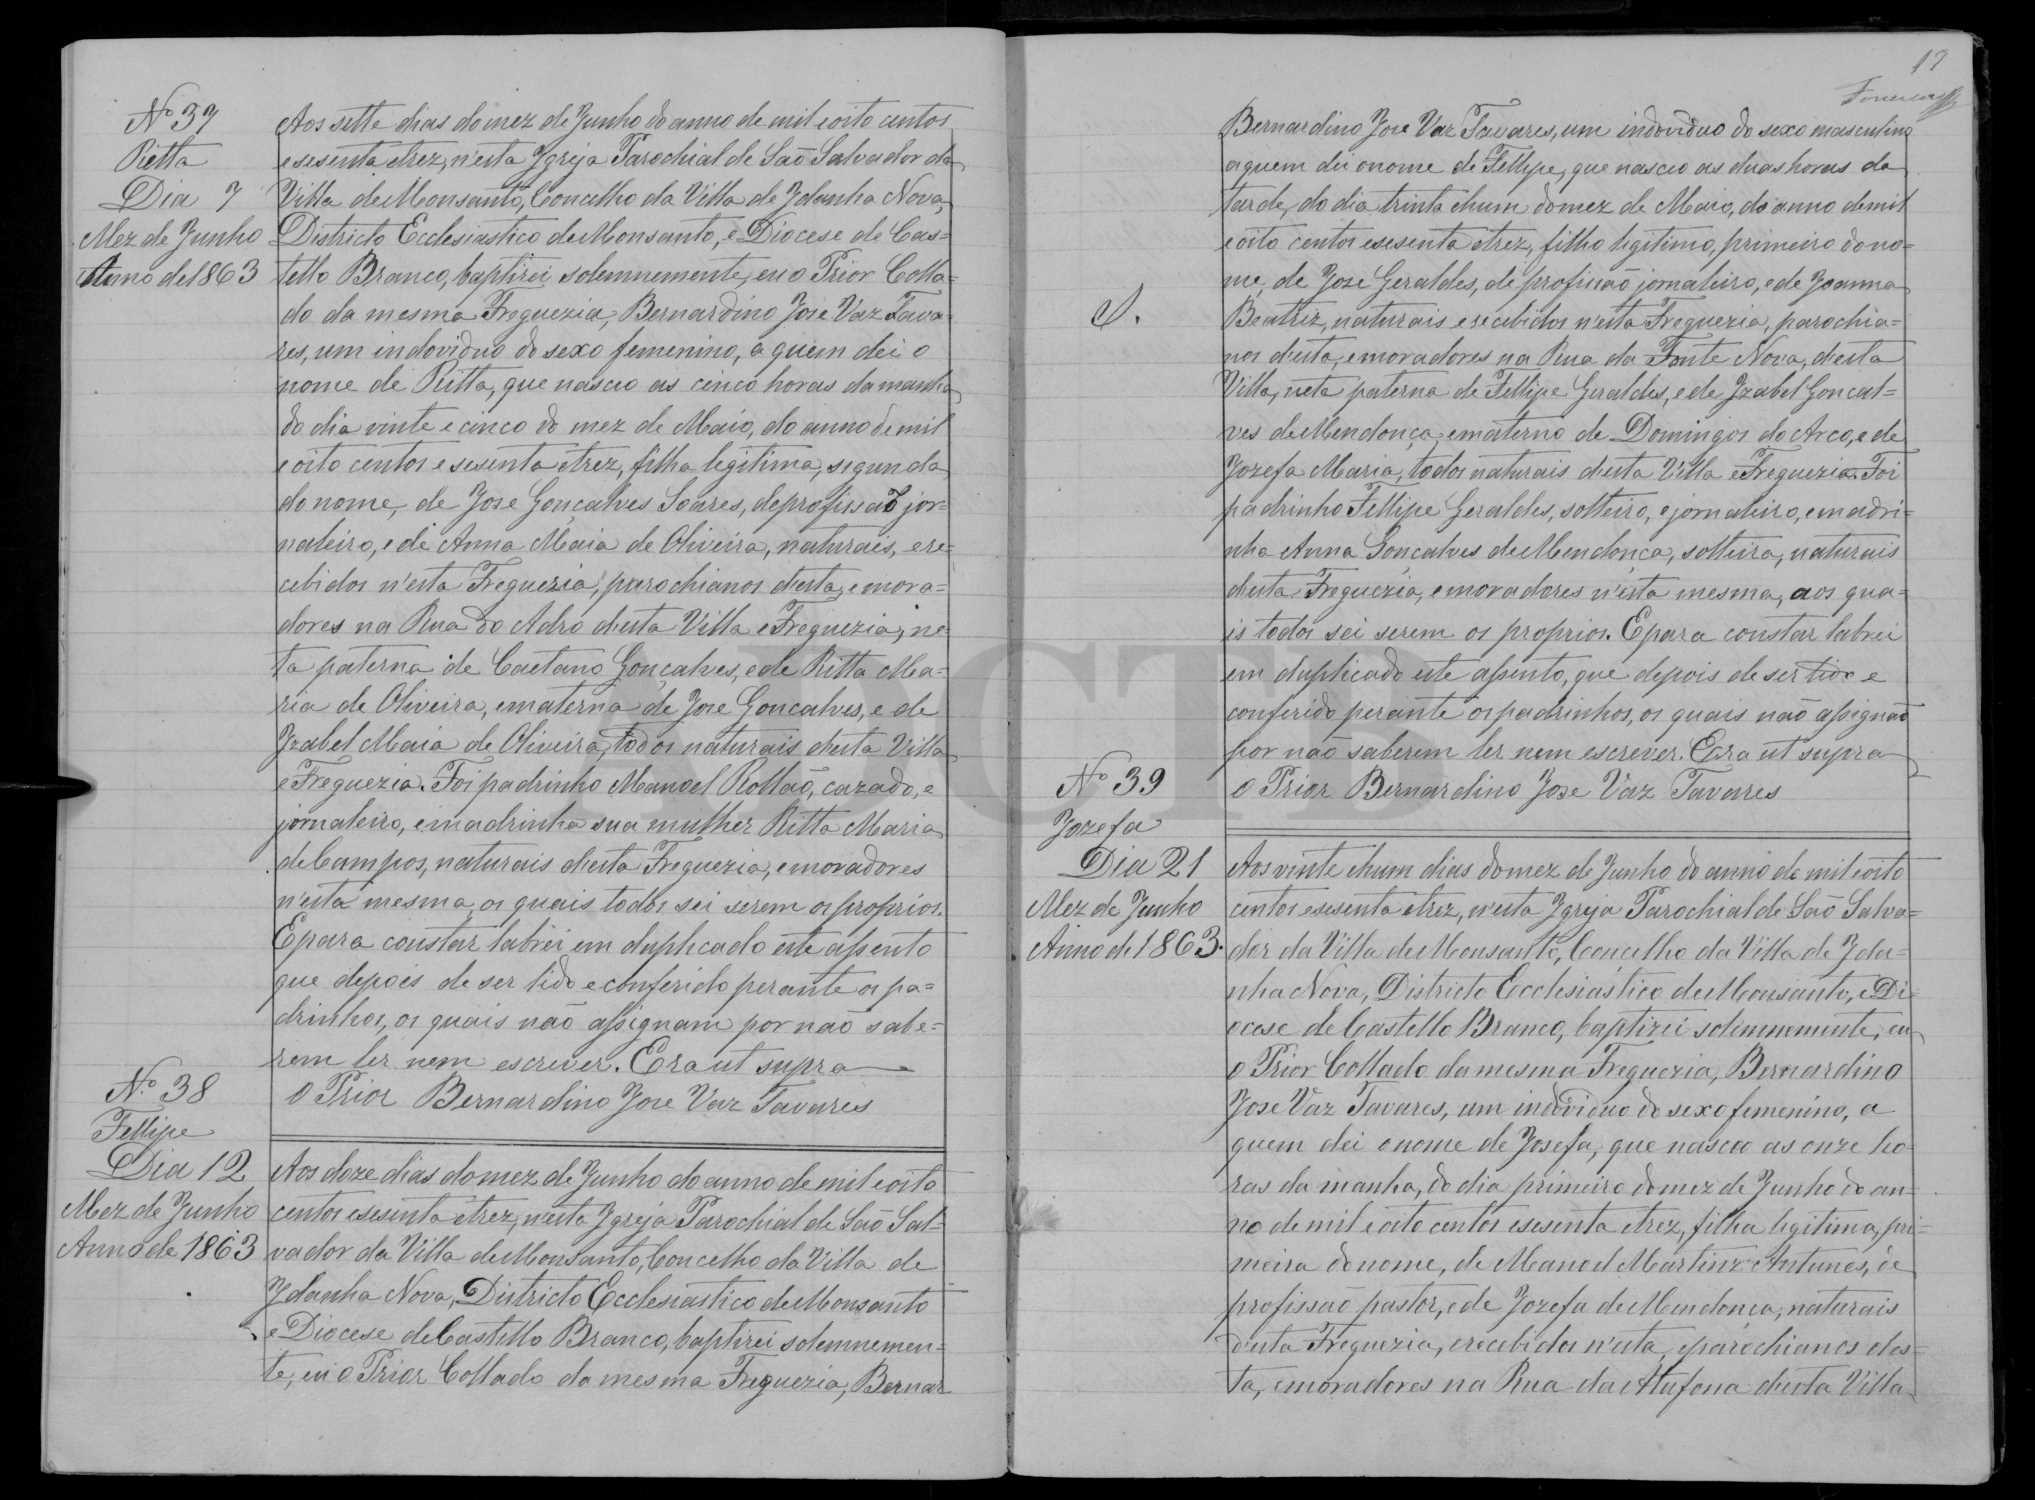 Nº 37
Ritta
Dia 7
Mez de Junho
Anno de 1863
Aos sette dias do mez de Junho do anno de mil e oito centos
e sesenta e trez, n'esta Igreja Parochial de Saõ Salvador da
Villa de Monsanto, Concelho da Villa de Idanha Nova,
Districto Ecclesiastico de Monsanto, e Diocese de Cas=
tello Branco, baptizei solemnemente, eu o Prior Colla=
do da mesma Freguezia, Bernardino Jose Vaz Tava=
res, um indoviduo do sexo femenino, a quem dei o
nome de Ritta, que nasceo as cinco horas da manha
do dia vinte e cinco do mez de Maio, do anno de mil
e oito centos e sesenta e trez, filha legitima, segunda
do nome, de Jose Gonçalves Soares, de profissaõ jor=
naleiro, e de Anna Maia de Oliveira, naturais, e re=
cebidos n'esta Freguezia, parochianos d'esta, e mora=
dores na Rua do Adro d'esta Villa e Freguezia, ne=
ta paterna de Caetano Gonçalves, e de Ritta Ma=
ria de Oliveira, e materna de Jose Goncalves, e de
Izabel Maia de Oliveira, todos naturais d'esta Villa
e Freguezia. Foi padrinho Manoel Rollaõ, cazado, e
jornaleiro, e madrinha sua mulher Ritta Maria
de Campos, naturais d'esta Freguezia, e moradores
n'esta mesma, os quais todos sei serem os proprios.
E para constar labrei em duplicado este assento
que depois de ser lido e conferido perante os pa=
drinhos, os quais naõ assignam por naõ sabe=
rem ler nem escrever. Era ut supra
O Prior Bernardino Jose Vaz Tavares
Nº 38
Fellipe
Dia 12
Mez de Junho
Anno de 1863
Aos doze dias do mez de Junho do anno de mil e oito
centos e sesenta e trez, n'esta Igreja Parochial de Saõ Sal=
vador da Villa de Monsanto, Concelho da Villa de
Idanha Nova, Districto Ecclesiastico de Monsanto
e Diocese de Castello Branco, baptizei solemnemen=
te, eu o Prior Collado da mesma Freguezia, Bernar
17
Bernardino Jose Vaz Tavares, um indoviduo do sexo masculino
a quem dei o nome de Fellipe, que nasceo as duas horas da
tarde, do dia trinta e hum do mez de Maio, do anno de mil
e oito centos e sesenta e trez, filho legitimo, primeiro do no=
me, de José Geraldes, de profissaõ jornaleiro, e de Joanna
Beatriz, naturais e recebidos n'esta Freguezia, parochia=
nos d'esta, e moradores na Rua da Fonte Nova, d'esta
Villa, neta paterna de Fellipe Geraldes, e de Izabel Goncal=
ves de Mendonça, e materno de Domingos do Arco, e de
Jozefa Maria, todos naturais d'esta Villa e Freguezia. Foi
padrinho Fellipe Geraldes, solteiro, e jornaleiro, e madri=
nha Anna Gonçalves de Mendonça, solteira, naturais
d'esta Freguezia, e moradores n'esta mesma, aos qua=
is todos sei serem os proprios. E para constar labrei
em duplicado este assento, que depois de ser lido e
conferido perante os padrinhos, os quais naõ assignaõ
por naõ saberem ler nem escrever. Era ut supra
O Prior Bernardino Jose Vaz Tavares
Nº 39
Jozefa
Dia 21
Mez de Junho
Anno de 1863.
Aos vinte e hum dias do mez de Junho do anno de mil e oito
centos e sesenta e trez, n'esta Igreja Parochial de Saõ Salva=
dor da Villa de Monsanto, Concelho da Villa de Ida=
nha Nova, Districto Ecclesiastico de Monsanto, e Di=
ocese de Castello Branco, baptizei solemnemente, eu
o Prior Collado da mesma Freguezia, Bernardino
Jose Vaz Tavares, um indoviduo do sexo femenino, a
quem dei o nome de Josefa, que nasceo as onze ho=
ras da manha, do dia primeiro do mez de Junho do an=
no de mil e oito centos e sesenta e trez, filha legitima, pri=
meira do nome, de Manoel Martinz Antunes, de
profissaõ pastor, e de Jozefa de Mendonca, naturais
d'esta Freguezia, e recebidos n'esta, e parochianos des=
ta, e moradores na Rua da Atafona d'esta Villa
ADCTB